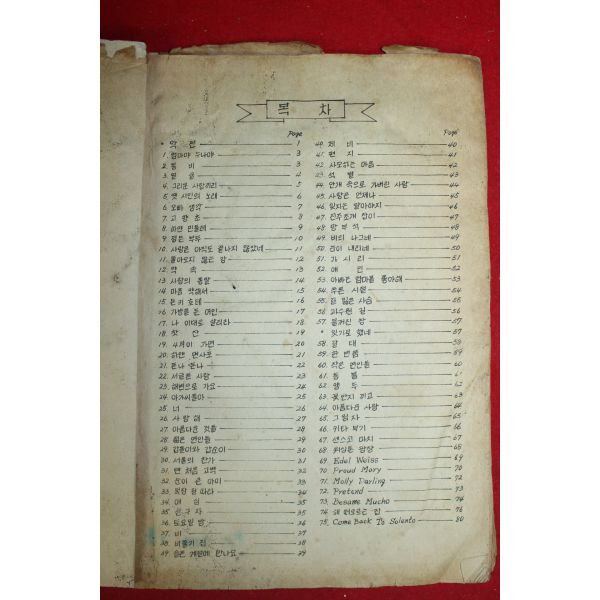 목차
Page
* 악전 1
1. 엄마야 누나야 3
2. 봄비 3
3. 얼굴 4
4. 그리운 사람끼리 5
5. 옛 시인의 노래 6
6. 오빠 생각 7
7. 고향초 8
8. 하얀 민들레 9
9. 젊은 9
10. 사랑은 아직도 끝나지 않았네 10
11. 돌아오지 않는 강 12
12. 약속 13
13. 사랑의 14
14. 마음 약해서 15
15. 돈키호테 16
16. 가방을 든 여인 17
17. 나 이대로 살리라 18
18. 19
19. 4월이 가면 20
20. 하얀 면사포 21
21. 22
22. 서글픈 사랑 23
23. 해변으로 가요 24
24. 아가씨들아 25
25. 너 26
26. 사랑해 27
27. 아름다운 것들 28
28. 젊은 연인들 29
29. 갑돌이와 갑순이 30
30. 서울의 찬가 31
31. 맨 처음 고백 32
32. 눈이 큰 아이 33
33. 따라 34
34. 애심 35
35. 선구자 35
36. 토요일 밤 36
37. 비 37
38. 비둘기 집 38
39. 슬픈 계절에 만나요 39
Page
40. 제비 40
41. 편지 41
42. 사모하는 마음 42
43. 석별 43
44. 안개 속으로 가버린 사람 44
45. 사랑은 언제나 45
46. 잊지는 말아야지 46
47. 진주조개 잡이 47
48. 망부석 48
49. 비의 나그네 49
50. 눈이 내리네 50
51. 가시리 51
52. 애인 52
53. 아빠는 엄마를 좋아해 53
54. 푸른 시절 54
55. 길 잃은 사슴 55
56. 과수원 길 56
57. 57
* 잊기로 했네 57
58. 갈대 58
59. 한 번쯤 59
60. 작은 연인들 60
61. 등불 61
62. 62
63. 꽃반지 끼고 63
64. 아름다운 사람 64
65. 그림자 65
66. 기타 치기 66
67. 센스코 마치 67
68. 68
69. Edel Weiss 69
70. Proud Mary 70
71. Molly Darling 71
72. Pretend 72
73. Besame Mucho 74
74. 해 뜨는 집 76
75. Come Back To Solento 80